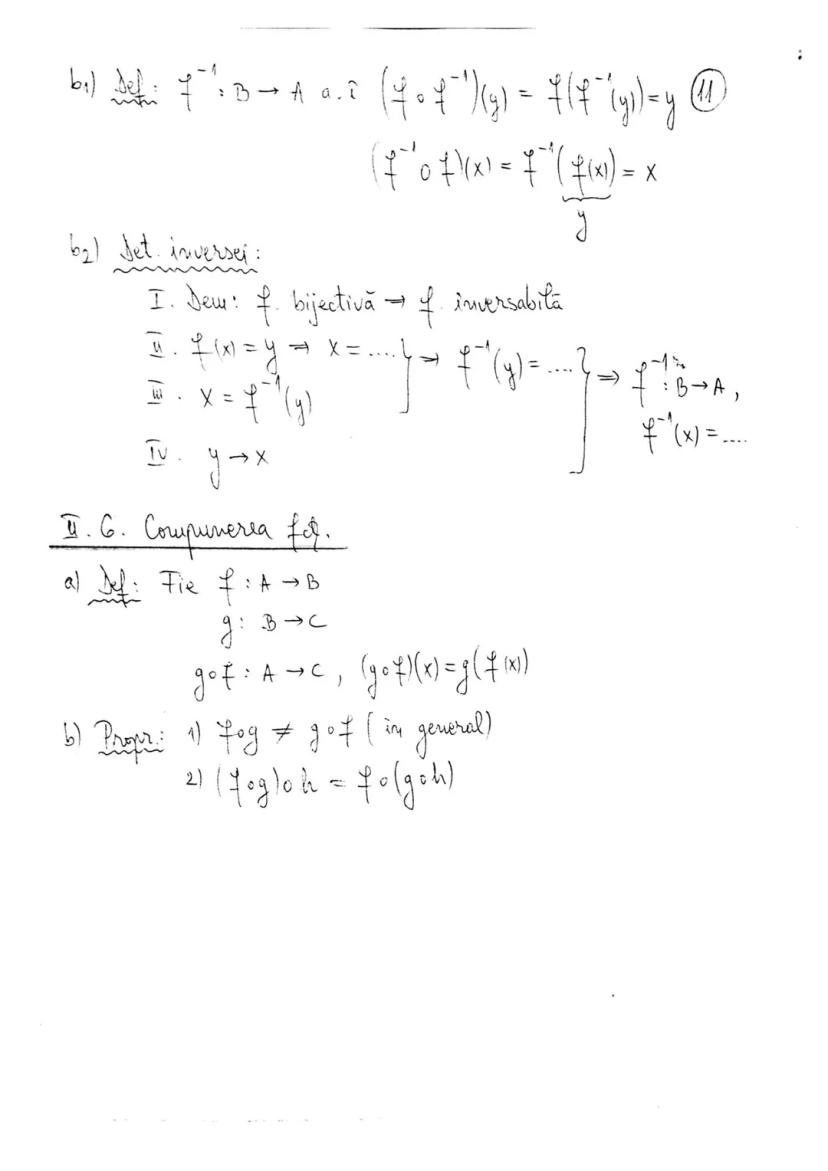 b₁) Def: f⁻¹: B → A a. î (f∘f⁻¹)(y) = f(f⁻¹(y)) = y (11)
(f⁻¹∘f)(x) = f⁻¹(f(x)) = x
y
b₂) Det. inversei:
I. Dem: f. bijectivă → f. inversabilă
II. f(x) = y ⇒ x = .... } ⇒ f⁻¹(y) = .... } ⇒ f⁻¹: B → A,
III. x = f⁻¹(y)
f⁻¹(x) = ....
IV. y → x
II. 6. Compunerea fcț.
a) Def: Fie f: A → B
g: B → C
g∘f: A → C, (g∘f)(x) = g(f(x))
b) Propr.: 1) f∘g ≠ g∘f (în general)
2) (f∘g)∘h = f∘(g∘h)